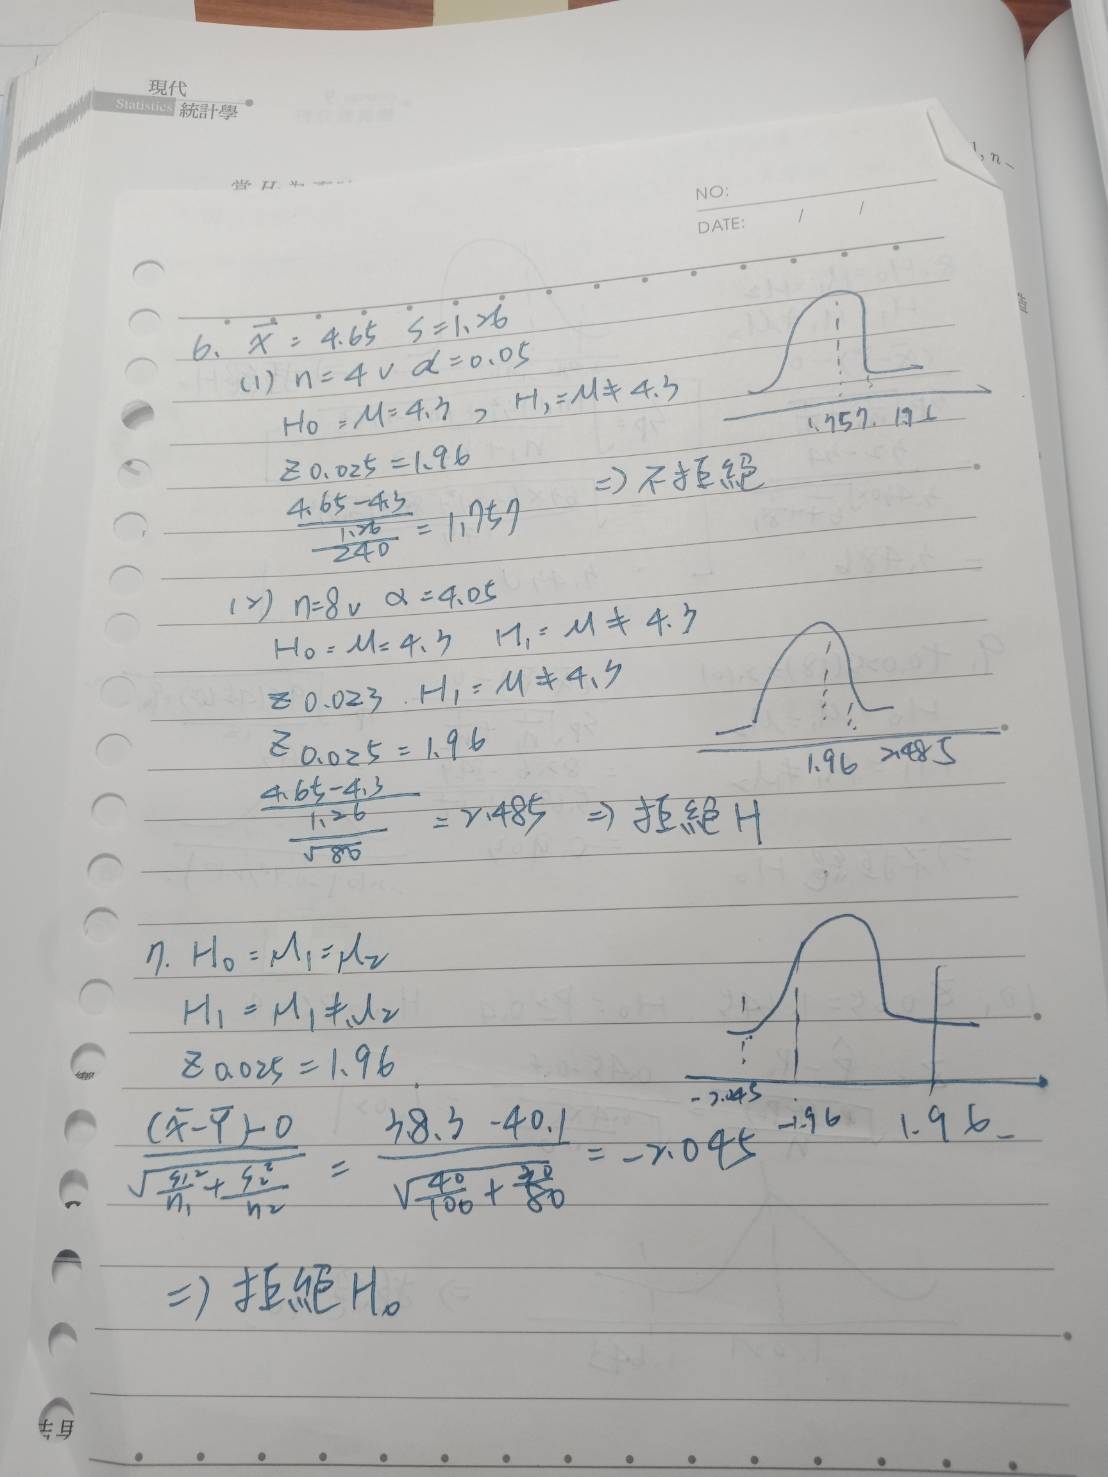 現代
Statistics 統計學
NO:
DATE: / /
1, n-
6. x̄ = 4.65 S=1.26
(1) n=40 α=0.05
H₀=M=4.3, H₁=M≠4.3
Z0.025=1.96
4.65-4.3 / (1.26/240) = 1.757 ⇒ 不拒絕
1.757. 1.96
(2) n=80 α=4.05
H₀=M=4.3 H₁=M≠4.3
Z0.023 . H₁=M≠4.3
Z0.025=1.96
4.65-4.3 / (1.26/√80) = 2.485 ⇒ 拒絕H
1.96 2.485
7. H₀=M₁=M₂
H₁=M₁≠M₂
Z0.025=1.96
-2.045 -1.96 1.96
(x̄-Ȳ)-0 / √(S₁²/n₁+S₂²/n₂) = 38.3-40.1 / √(40/100+30/80) = -2.045
⇒ 拒絕H₀